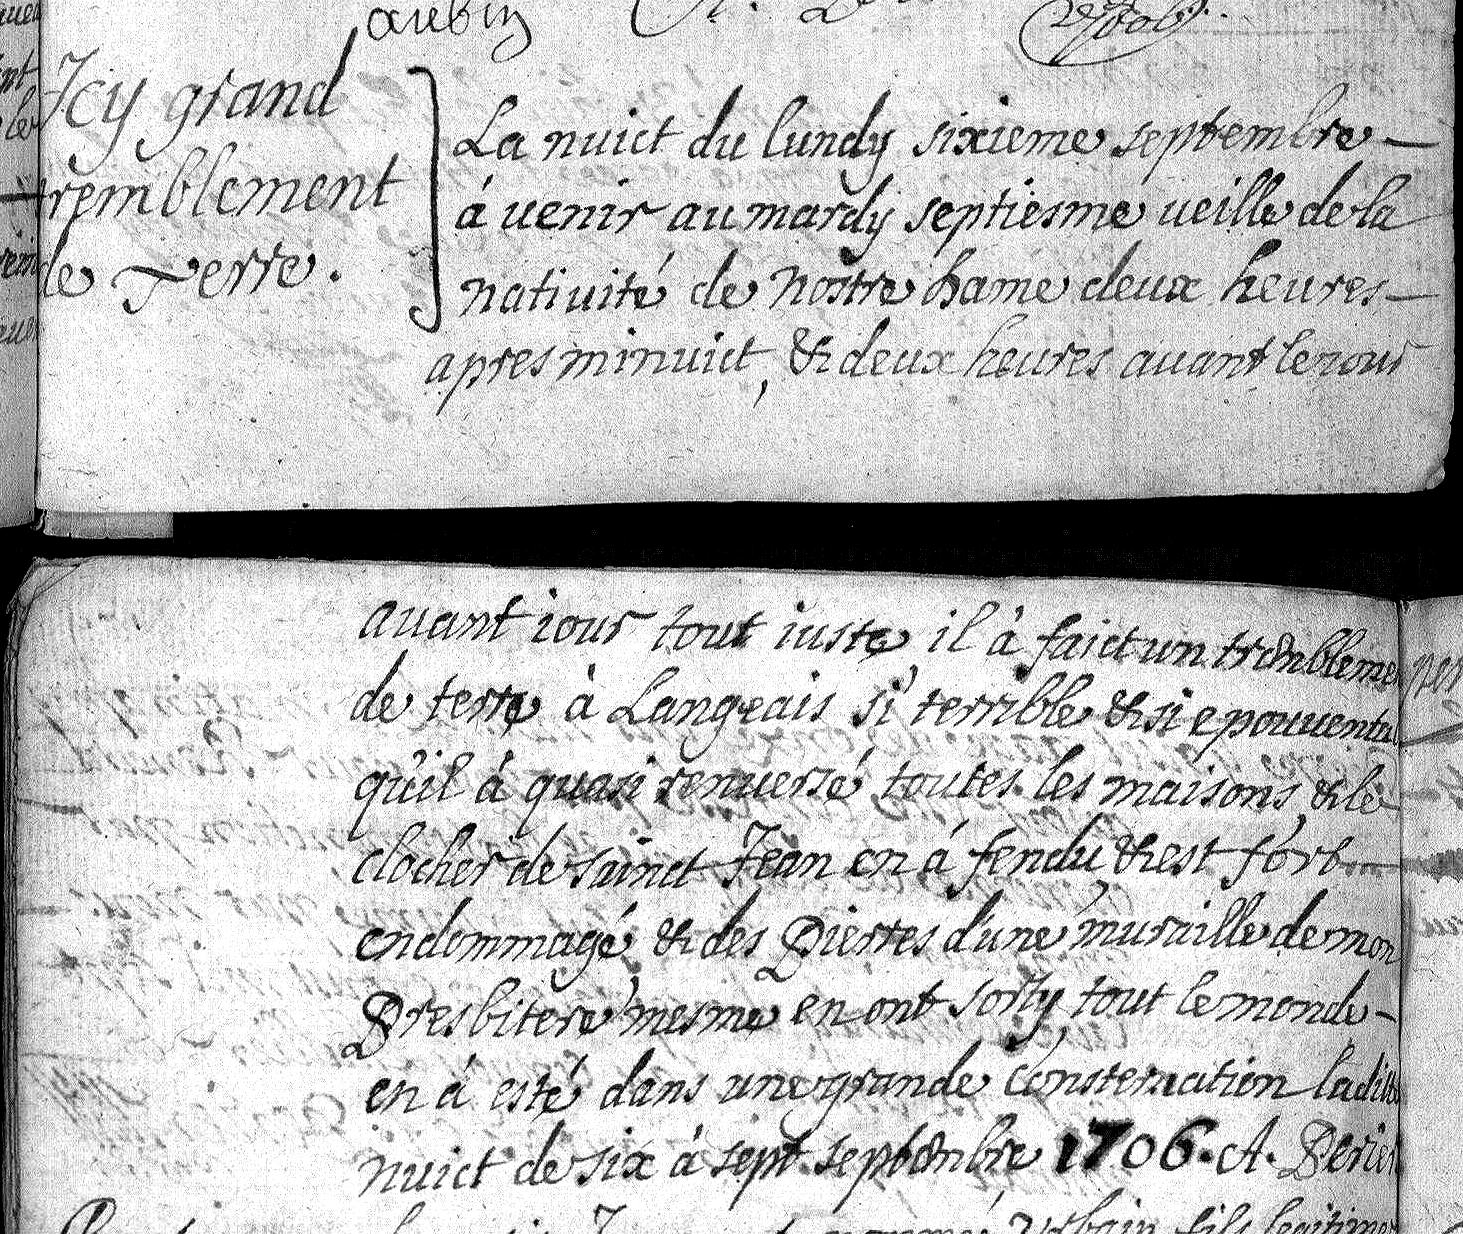 aubin
Icy grand
tremblement
de Terre.
La nuict du lundy sixieme septembre –
à uenir au mardy septiesme ueille de la
natiuité de nostre Dame deux heures –
apres minuict, & deux heures auant le iour
auant iour tout iuste il à faict un trembleme
de terre à Langeais si terrible & si epouuenta
qu'il à quasi renuersé toutes les maisons, & le
clocher de sainct Jean en à fendu, & est fort
endommagé, & des Pierres d'une muraille de mon
Presbitere mesme en ont sorty, tout le monde –
en à esté dans une grande consternation ladite
nuict de six à sept septembre 1706. A. Perier
Urbain fils legitime